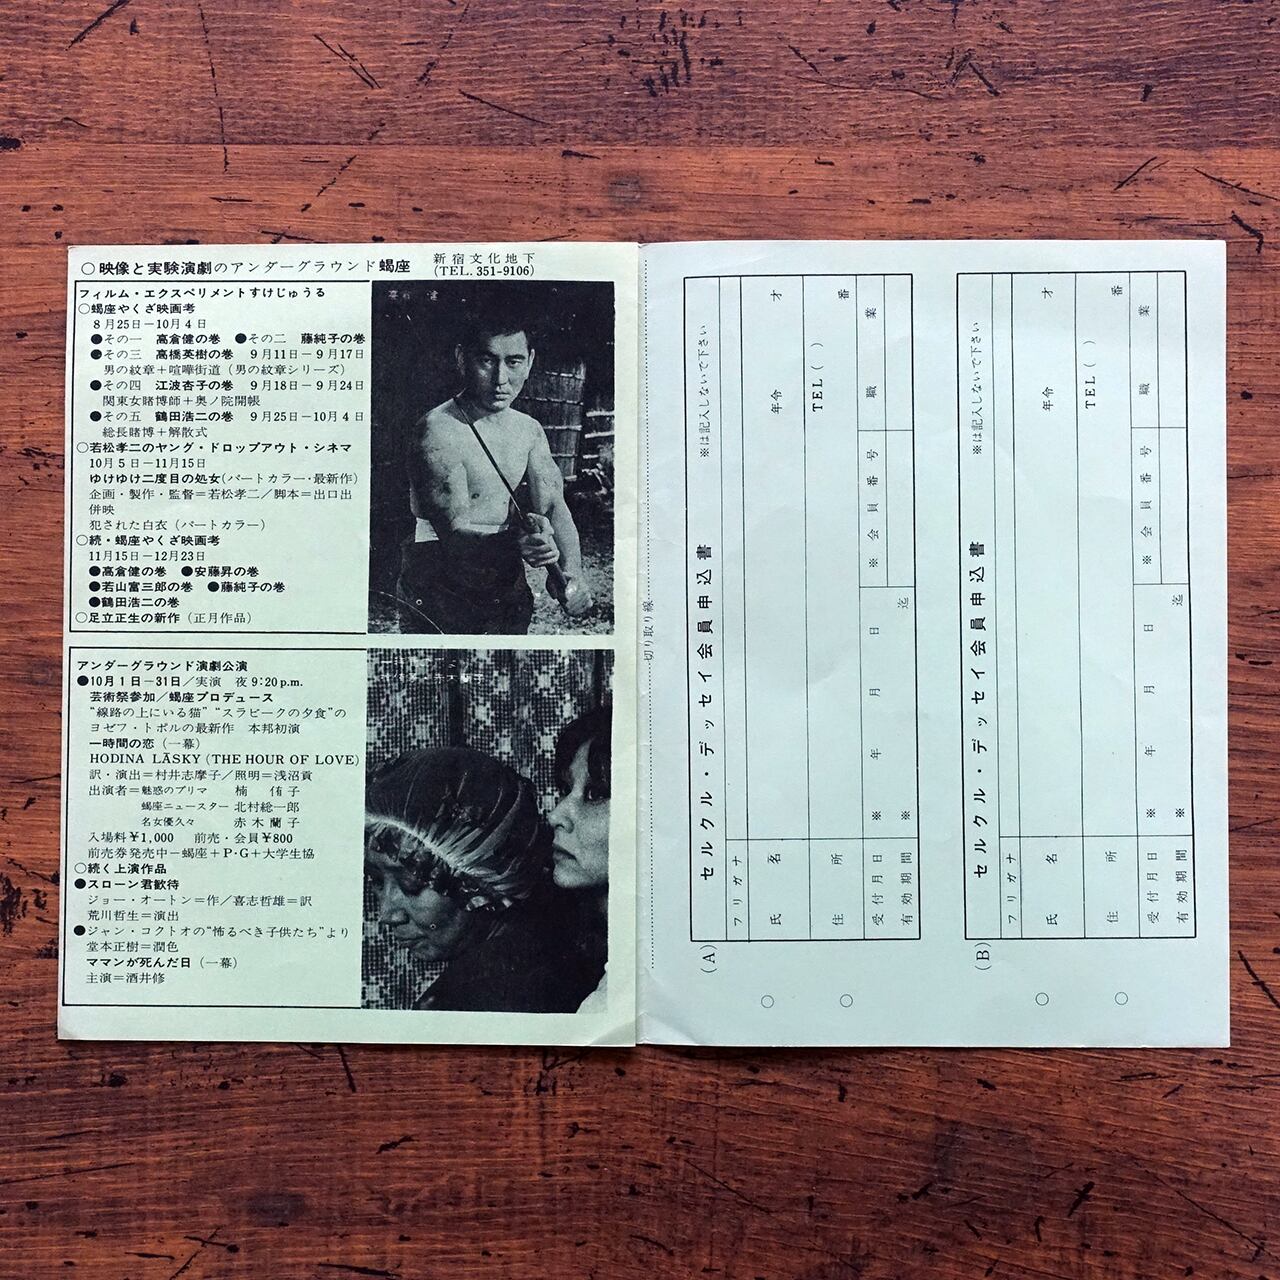 ○映像と実験演劇のアンダーグラウンド蝎座
新宿文化地下
(TEL. 351-9106)
フィルム・エクスペリメントすけじゅうる
○蝎座やくざ映画考
8月25日－10月4日
●その一　高倉健の巻　●その二　藤純子の巻
●その三　高橋英樹の巻　9月11日－9月17日
男の紋章＋喧嘩街道（男の紋章シリーズ）
●その四　江波杏子の巻　9月18日－9月24日
関東女賭博師＋奥ノ院開帳
●その五　鶴田浩二の巻　9月25日－10月4日
総長賭博＋解散式
○若松孝二のヤング・ドロップアウト・シネマ
10月5日－11月15日
ゆけゆけ二度目の処女（パートカラー・最新作）
企画・製作・監督＝若松孝二／脚本＝出口出
併映
犯された白衣（パートカラー）
○続・蝎座やくざ映画考
11月15日－12月23日
●高倉健の巻　●安藤昇の巻
●若山富三郎の巻　●藤純子の巻
●鶴田浩二の巻
○足立正生の新作（正月作品）
アンダーグラウンド演劇公演
●10月1日－31日／実演　夜9:20p.m.
芸術祭参加／蝎座プロデュース
“線路の上にいる猫”“スラビークの夕食”の
ヨゼフ・トポルの最新作　本邦初演
一時間の恋（一幕）
HODINA LĀSKY (THE HOUR OF LOVE)
訳・演出＝村井志摩子／照明＝浅沼貢
出演者＝魅惑のプリマ　楠　侑子
蝎座ニュースター　北村総一郎
名女優久々　赤木蘭子
入場料￥1,000　前売・会員￥800
前売券発売中－蝎座＋P・G＋大学生協
○続く上演作品
●スローン君歓待
ジョー・オートン＝作／喜志哲雄＝訳
荒川哲生＝演出
●ジャン・コクトオの“怖るべき子供たち”より
堂本正樹＝潤色
ママンが死んだ日（一幕）
主演＝酒井修
切り取り線
(A)　セルクル・デッセイ会員申込書　※は記入しないで下さい
フリガナ
氏名　年令　才
住所　TEL（　）　番
受付月日　※　年　月　日　※会員番号　職業
有効期間　※　迄
(B)　セルクル・デッセイ会員申込書　※は記入しないで下さい
フリガナ
氏名　年令　才
住所　TEL（　）　番
受付月日　※　年　月　日　※会員番号　職業
有効期間　※　迄